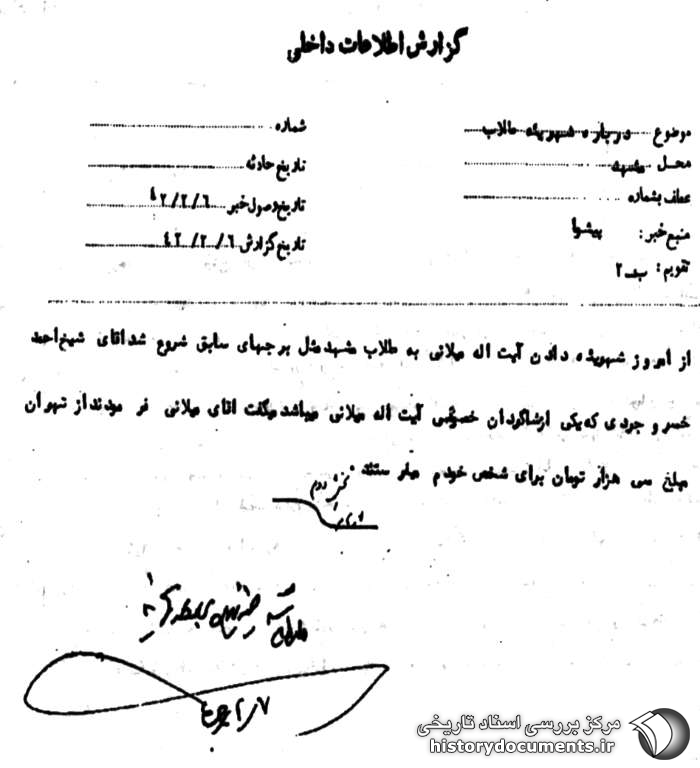 گزارش اطلاعات داخلی
موضوع درباره شهریه طلاب
محل مشهد
عطف بشماره
منبع خبر: پیشوا
تقویم: ب-۲
شماره
تاریخ حادثه
تاریخ وصول خبر ۴۲/۲/۶
تاریخ گزارش ۴۲/۲/۶
از امروز شهریه دادن آیت اله میلانی به طلاب مشهد مثل برجهای سابق شروع شد اقای شیخ احمد
خسرو جردی که یکی ازشاگردان خصوصی آیت اله میلانی میباشد میگفت اقای میلانی فرمودند از تهران
مبلغ سی هزار تومان برای شخص خودم میفرستند
بخش دوم
مرکز بررسی اسناد تاریخی
historydocuments.ir